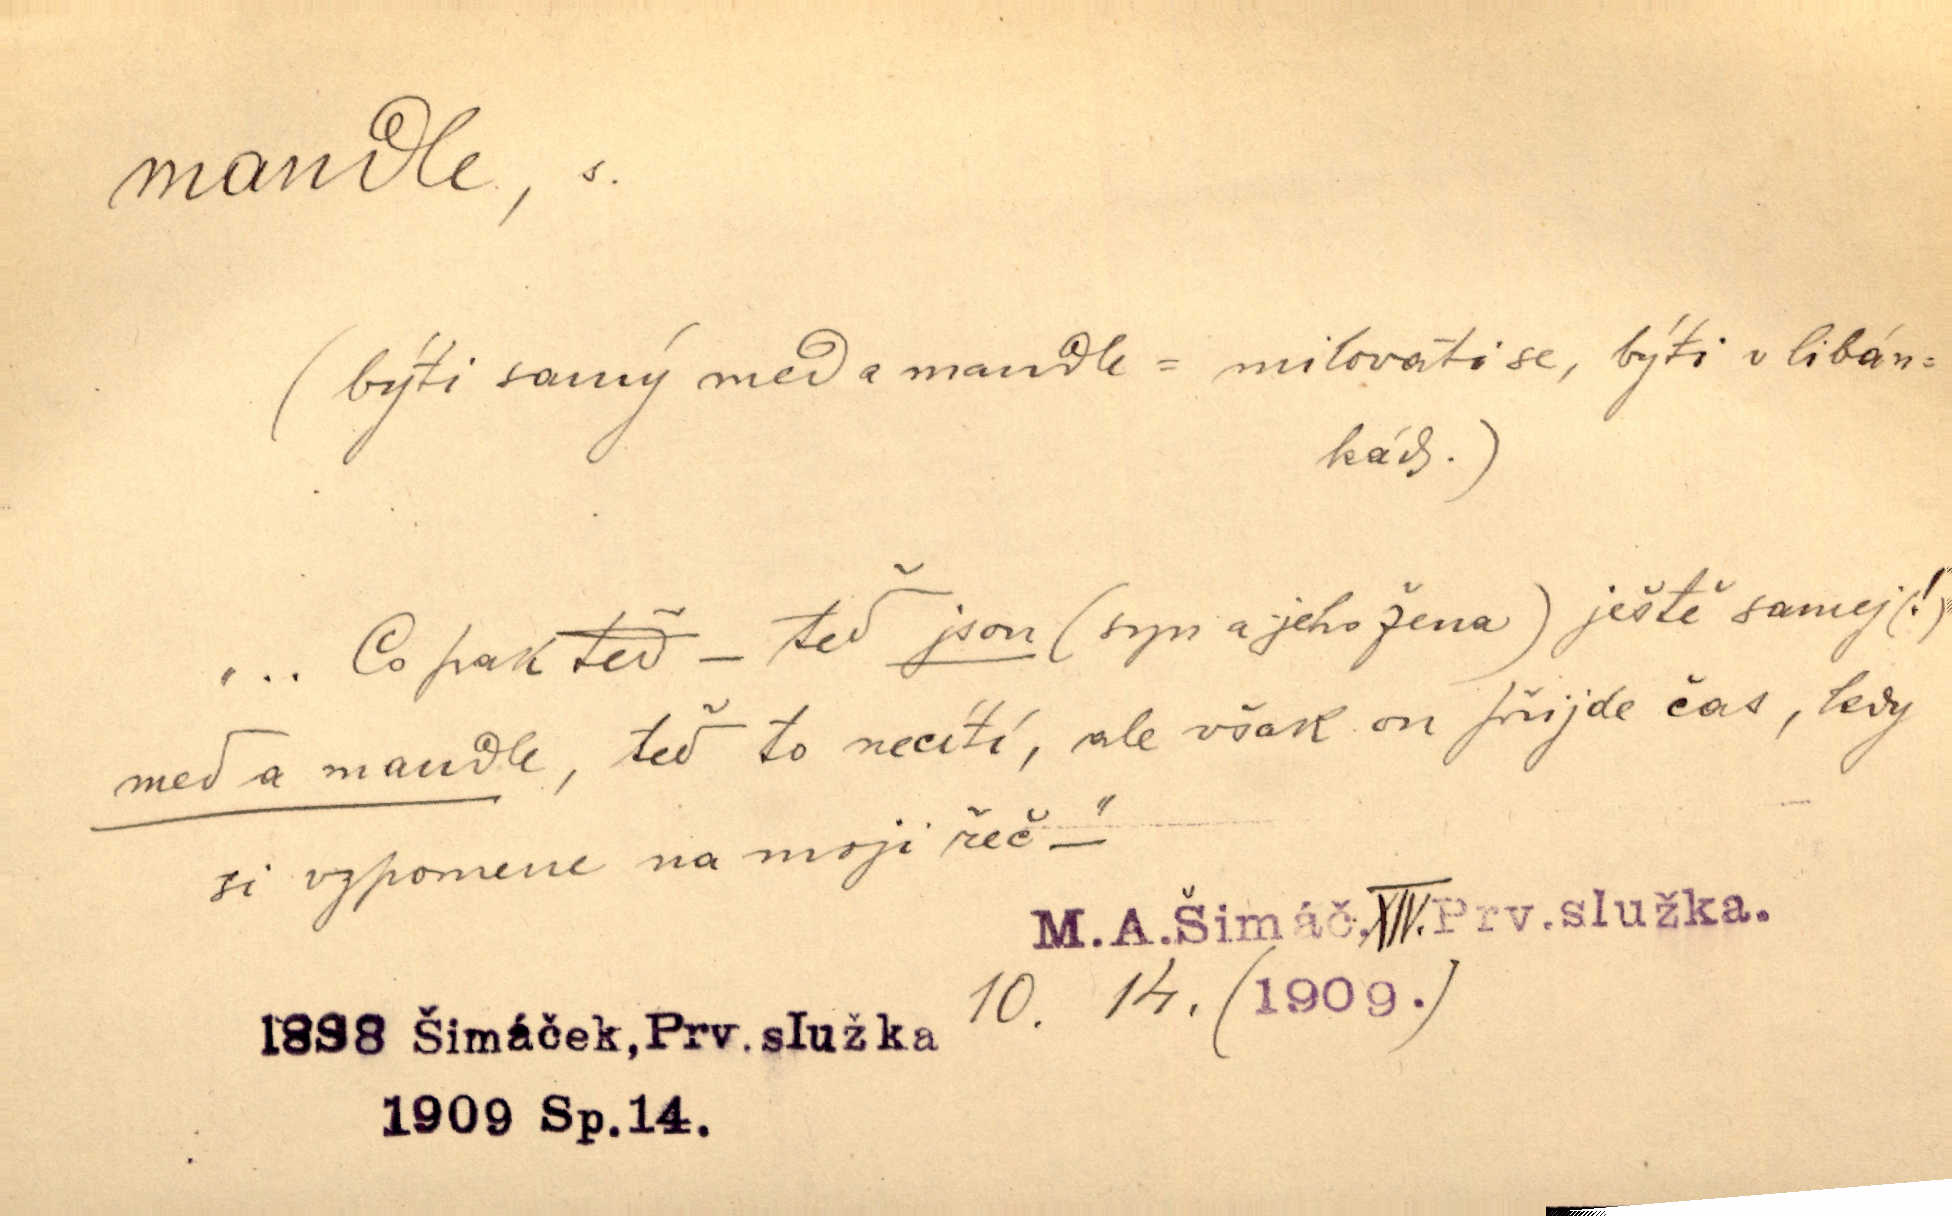 mandle, s.
(býti samý med a mandle = milovati se, býti v libán=
kách.)
".. Co pak teď – teď json (syn a jeho žena) ještě samej (!)
med a mandle, teď to necítí, ale však on přijde čas, kdy
si vzpomene na moji řeč –"
M.A.Šimáč.XIV.Prv.služka.
10. 14. (1909.)
1898 Šimáček,Prv.služka
1909 Sp.14.